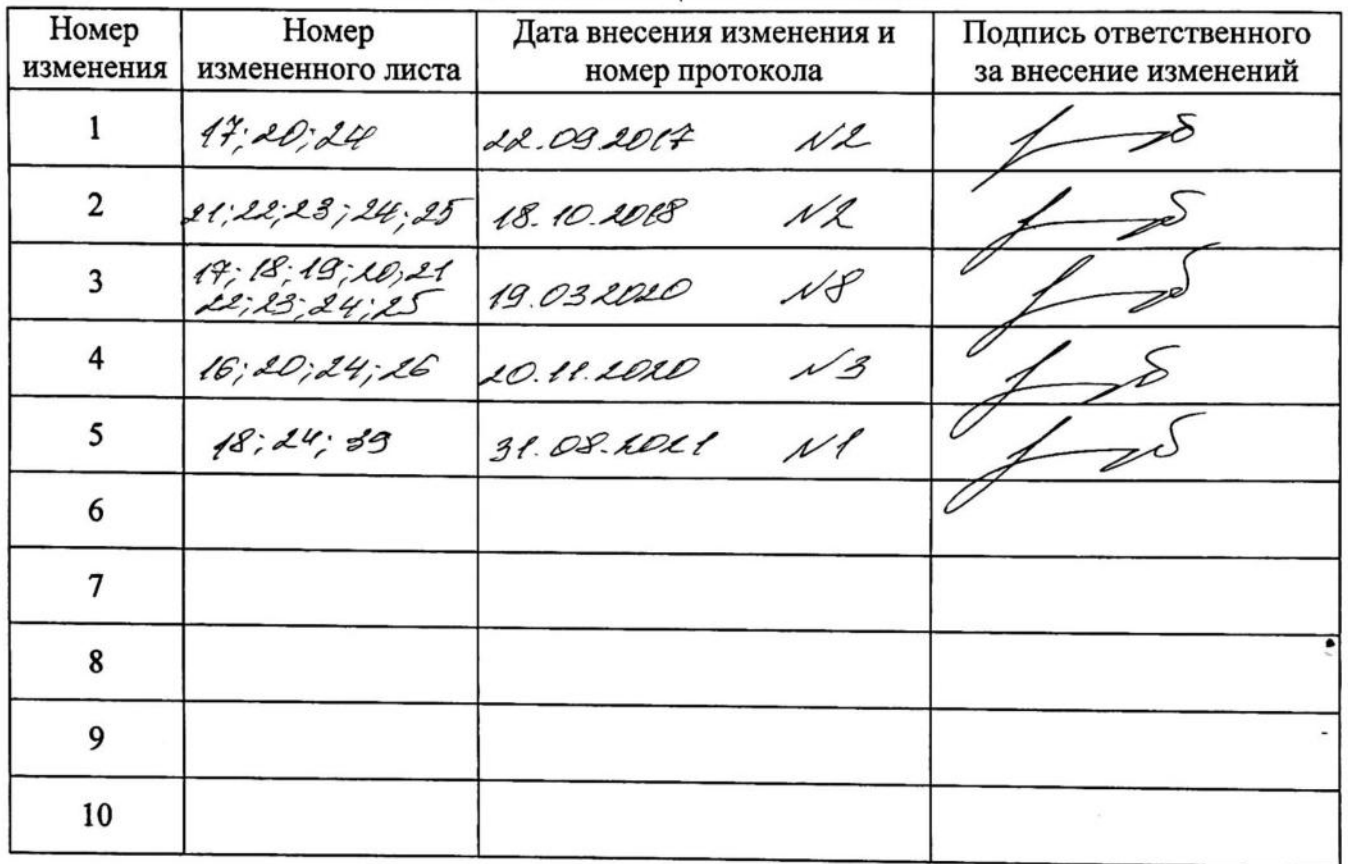 Номер изменения Номер измененного листа Дата внесения изменения и номер протокола Подпись ответственного за внесение изменений
1 17; 20; 24 22.09.2017 N2
2 21; 22; 23; 24; 25 18.10.2018 N2
3 17; 18; 19; 20; 21
22; 23; 24; 25 19.03 2020 N8
4 16; 20; 24; 26 20.11.2020 N3
5 18; 24; 39 31.08.2021 N1
6
7
8
9
10